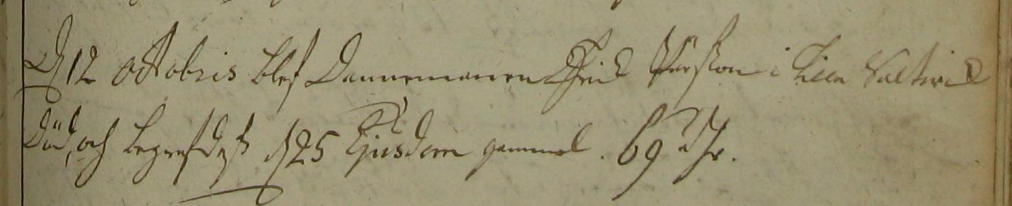 D 12 octobris blef Dannemannen Erich Pärsson i Lilla Saltwid
Död, och begrofdess d 25 Ejusdem gammal. 69 Åhr.